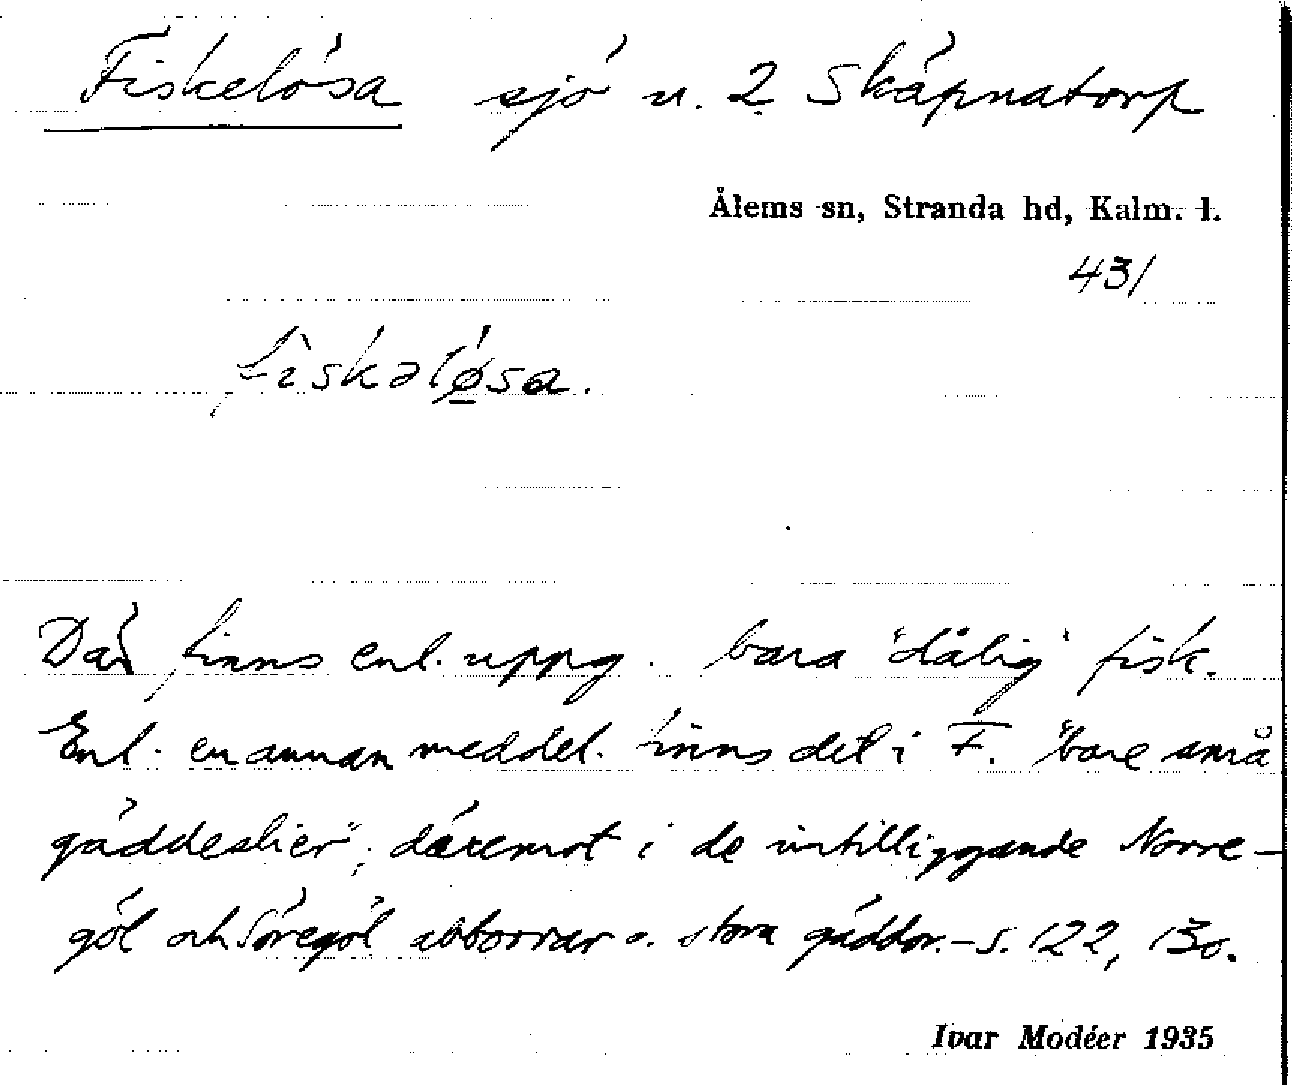 Fiskelösa sjö u. 2 Skäpnatorp
Ålems sn, Stranda hd, Kalm. l.
431
fìskəlø̱sa.
Där finns enl. uppg. bara "dålig" fisk.
Enl. en annan meddel. finns det i F. "bare små
gäddeslier"; däremot i de intilliggande Norre-
göl och Söregöl abborrar o. stora gäddor. – S. 122, 130.
Ivar Modéer 1935